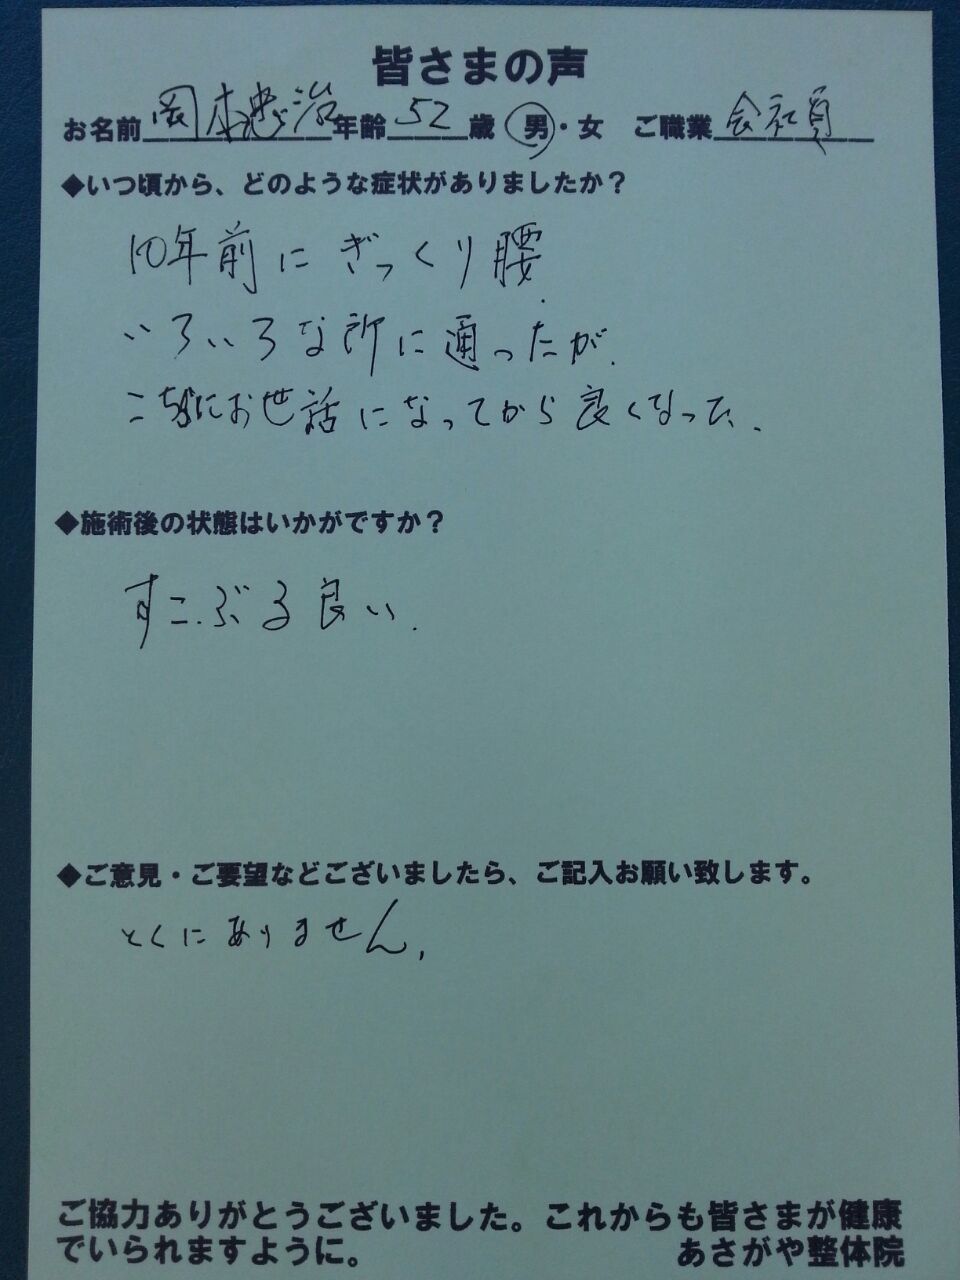 皆さまの声
お名前 岡本忠治 年齢 52 歳 男・女 ご職業 会社員
◆いつ頃から、どのような症状がありましたか？
10年前にぎっくり腰.
いろいろな所に通ったが.
こちらにお世話になってから良くなった.
◆施術後の状態はいかがですか？
すこぶる良い.
◆ご意見・ご要望などございましたら、ご記入お願い致します。
とくにありません.
ご協力ありがとうございました。これからも皆さまが健康
でいられますように。 あさがや整体院